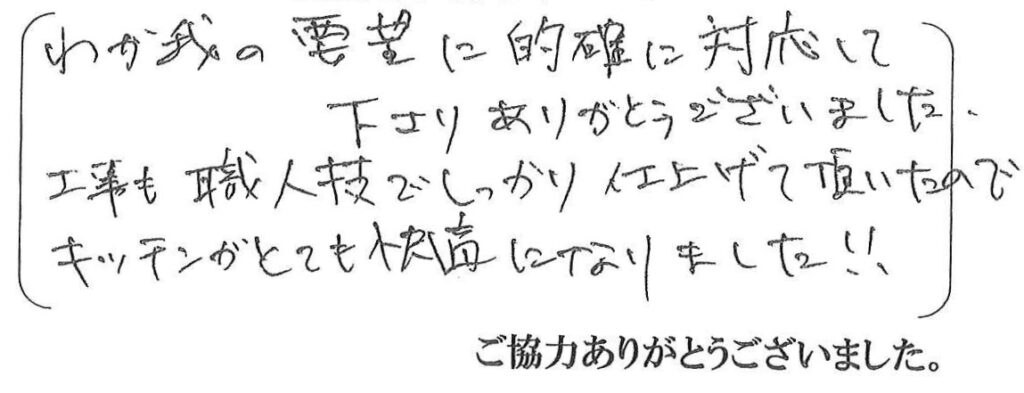 わが我の要望に的確に対応して
下さりありがとうございました.
工事も職人技でしっかり仕上げて頂いたので
キッチンがとても快適になりました!!
ご協力ありがとうございました。